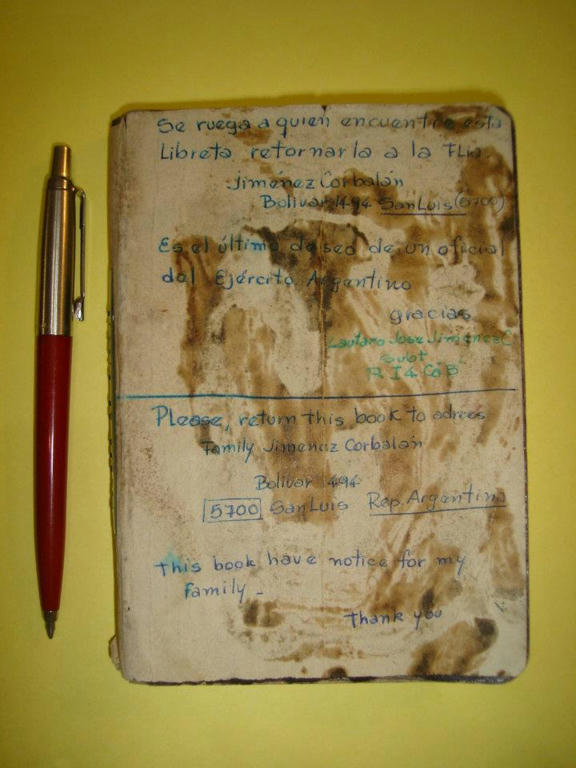 Se ruega a quien encuentre esta
Libreta retornarla a la FLia.
Jiménez Corbalán
Bolivar 1494 San Luis (5700)
Es el último deseo de un oficial
del Ejército Argentino
gracias
Lautaro Jose Jimenez C
Subt
R I 4 Ca B
Please, return this book to adrees
Family Jimenez Corbalán
Bolivar 1494
5700 San Luis Rep. Argentina
This book have notice for my
family -
thank you